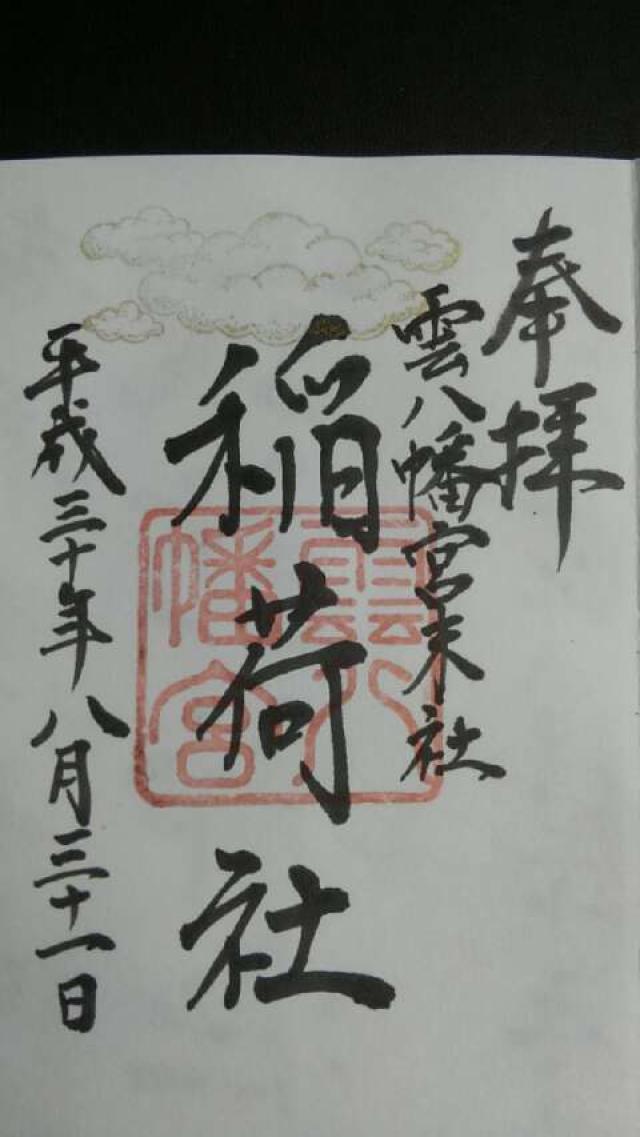 奉拝
雲八幡宮末社
稲荷社
平成三十年八月三十一日
雲八
幡宮